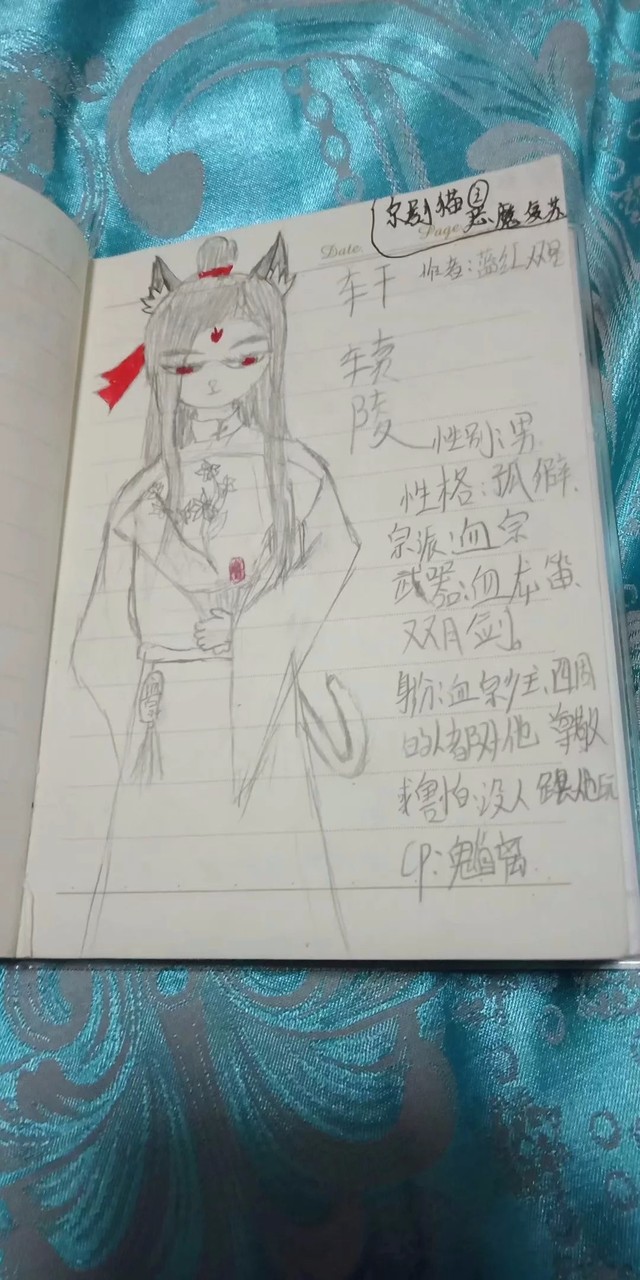 京剧猫②恶魔复苏
Date. Page
轩 作者:蓝红双星
辕
陵
性别:男
性格:孤僻.
宗派:血宗
武器:血龙笛.
双月剑。
身份:血宗少主,四周
的人都对他尊敬
害怕:没人跟他玩
CP:魁离